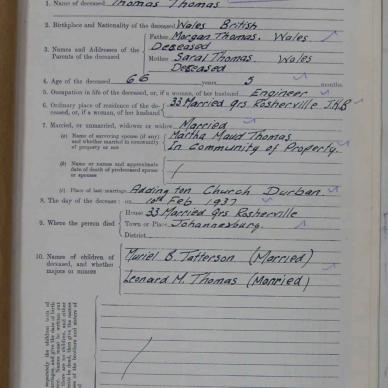 1. Name of deceased Thomas Thomas
2. Birthplace and Nationality of the deceased Wales British
Father Morgan Thomas. Wales
3. Names and Addresses of the Parents of the deceased
Deceased
Mother Saral Thomas. Wales
Deceased
4. Age of the deceased 66 years 5 months
5. Occupation in life of the deceased, or, if a woman, of her husband Engineer
6. Ordinary place of residence of the deceased, or, if a woman, of her husband 33 Married qrs Rosherville J.H.B
7. Married, or unmarried, widower or widow Married
(a) Name of surviving spouse (if any) and whether married in community of property or not
Martha Maud Thomas
In Community of Property.
(b) Name or names and approximate date of death of predeceased spouse or spouses
(c) Place of last marriage Addington Church Durban
8. The day of the decease: on 10th Feb 1937
House 33 Married Qrs Rosherville
9. Where the person died Town or Place Johannesburg.
District
10. Names of children of deceased, and whether majors or minors
Muriel B. Tatterson (Married)
Leonard M. Thomas (Married)